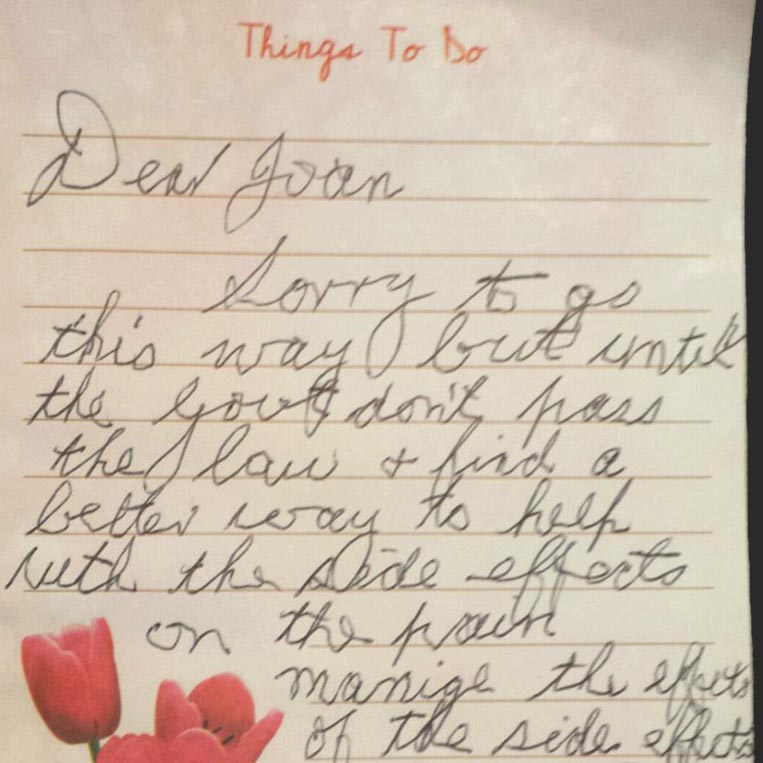 Things To Do
Dear Joan
Sorry to go
this way but until
the Gov't don't pass
the law + find a
better way to help
with the side effects
on the pain
manige the effects
of the side effects